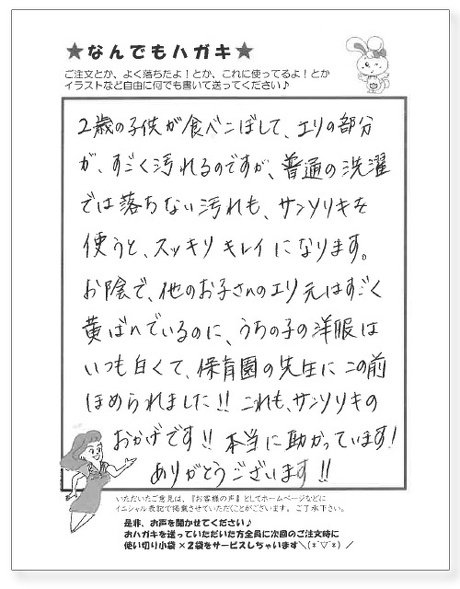 ★なんでもハガキ★
ご注文とか、よく落ちたよ！とか、これに使ってるよ！とか
イラストなど自由に何でも書いて送ってください♪
2歳の子供が食べこぼして、エリの部分
が、すごく汚れるのですが、普通の洗濯
では落ちない汚れも、サンソリキを
使うと、スッキリキレイになります。
お陰で、他のお子さんのエリ元はすごく
黄ばんでいるのに、うちの子の洋服は
いつも白くて、保育園の先生にこの前
ほめられました!! これも、サンソリキの
おかげです!! 本当に助かっています!
ありがとうございます!!
いただいたご意見は、『お客様の声』としてホームページなどに
イニシャル表記で掲載させていただくことがございます。ご了承下さい。
是非、お声を聞かせてください♪
おハガキを送っていただいた方全員に次回のご注文時に
使い切り小袋×2袋をサービスしちゃいます＼(*ˆ▽ˆ*)／